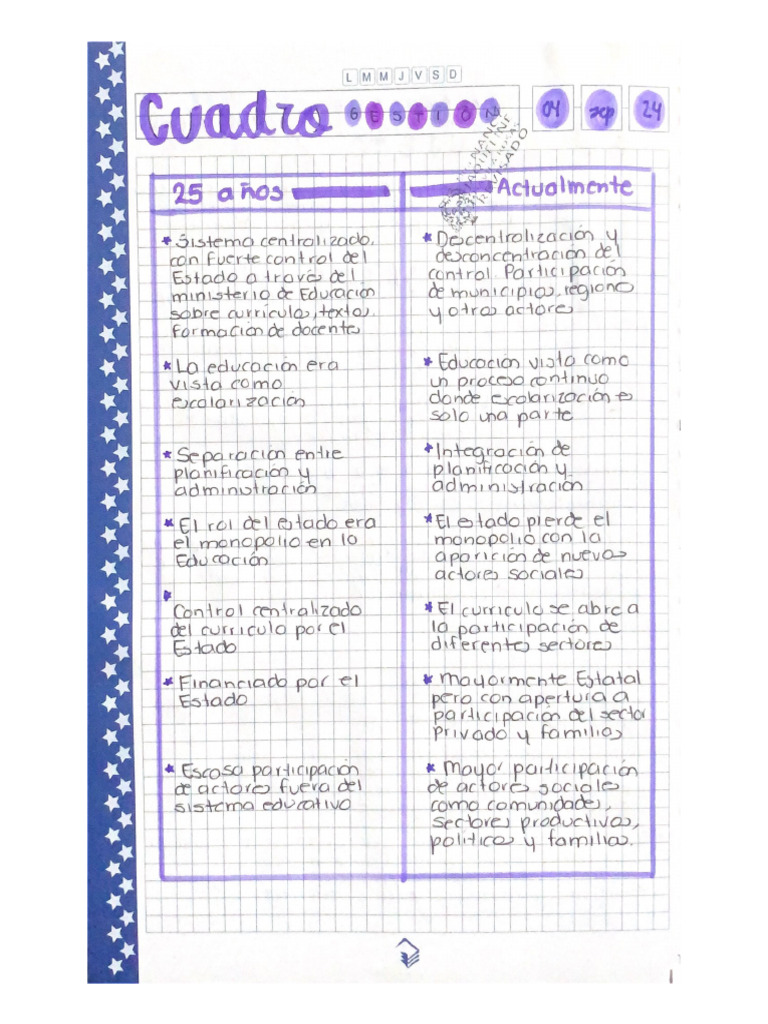 L M M J V S D
Cuadro GESTIÓN 04 sep 24
25 años
Actualmente
* Sistema centralizado,
con fuerte control del
Estado a través del
ministerio de Educación
sobre curriculas, textos,
formación de docentes
* Descentralización y
desconcentración del
control. Participación
de municipios, regiones
y otros actores
* La educación era
vista como
escolarización
* Educación vista como
un proceso continuo
donde escolarización es
solo una parte
* Separación entre
planificación y
administración
* Integración de
planificación y
administración
* El rol del estado era
el monopolio en la
Educación
* El estado pierde el
monopolio con la
aparición de nuevos
actores sociales
*
Control centralizado
del curriculo por el
Estado
* El curriculo se abre a
la participación de
diferentes sectores
* Financiado por el
Estado
* Mayormente Estatal
pero con apertura a
participación del sector
privado y familias
* Escasa participación
de actores fuera del
sistema educativo
* Mayor participación
de actores sociales
como comunidades,
sectores productivos,
politicos y familias.